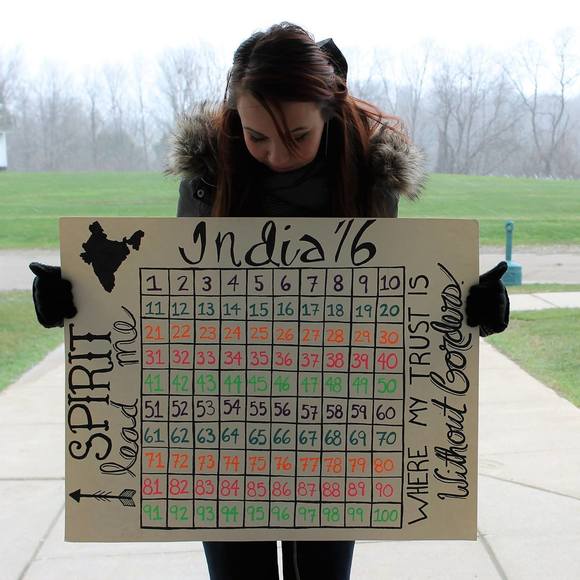 India '16
SPIRIT
lead me
1 2 3 4 5 6 7 8 9 10
11 12 13 14 15 16 17 18 19 20
21 22 23 24 25 26 27 28 29 30
31 32 33 34 35 36 37 38 39 40
41 42 43 44 45 46 47 48 49 50
51 52 53 54 55 56 57 58 59 60
61 62 63 64 65 66 67 68 69 70
71 72 73 74 75 76 77 78 79 80
81 82 83 84 85 86 87 88 89 90
91 92 93 94 95 96 97 98 99 100
WHERE MY TRUST IS
Without Borders